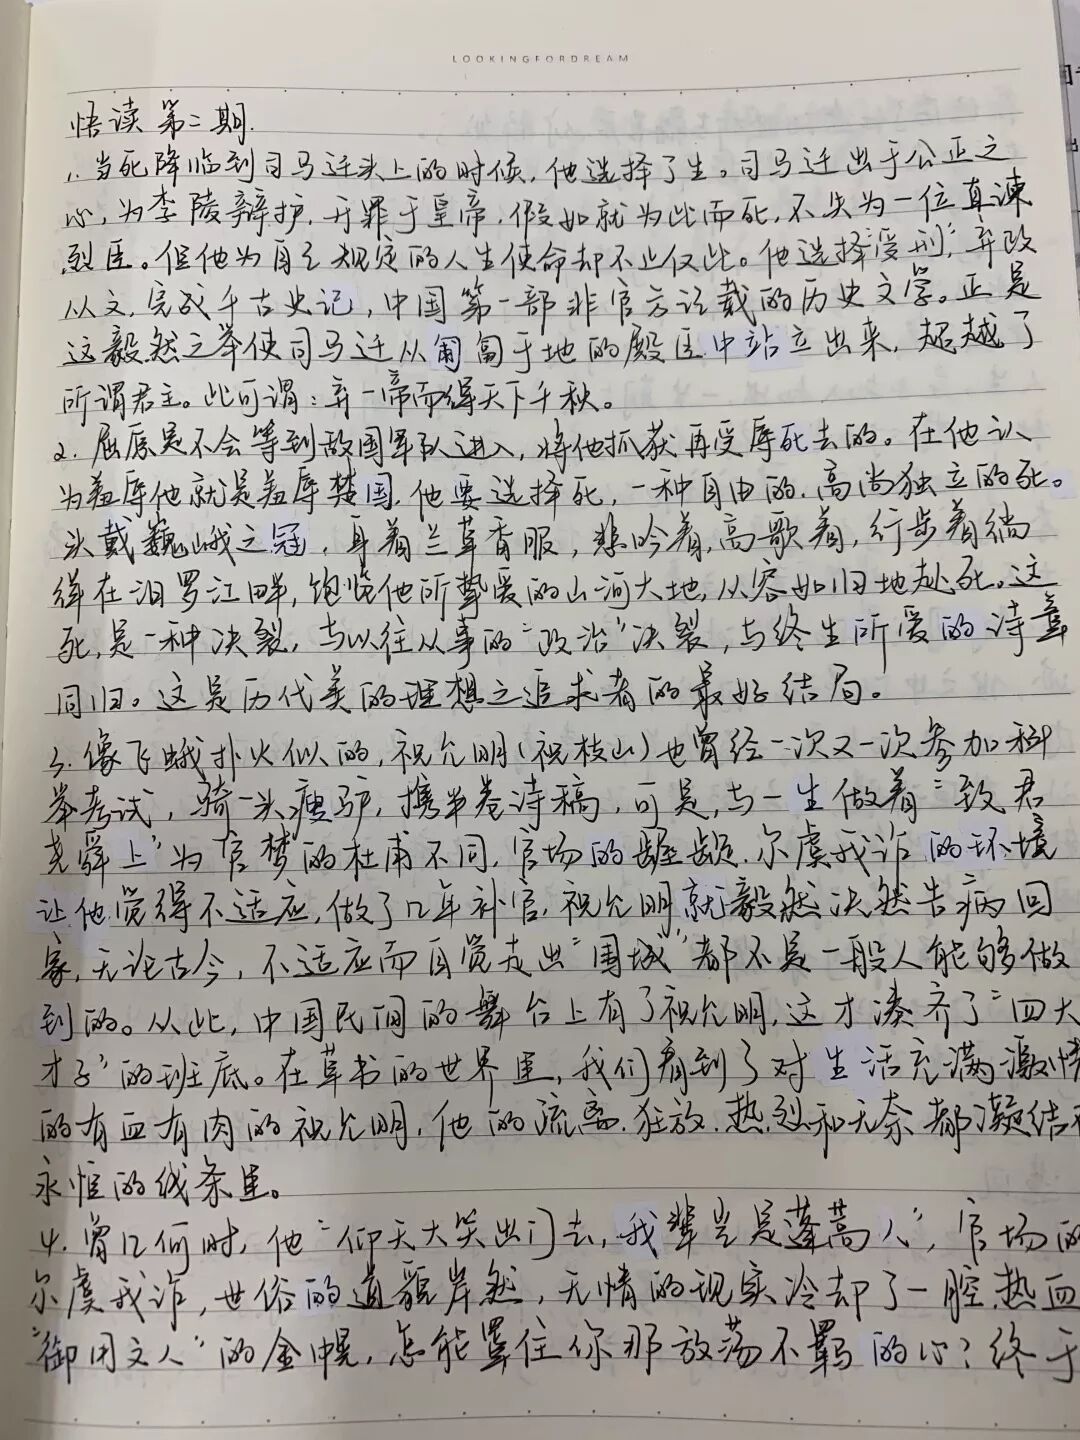 LOOKINGFORDREAM
悟读 第二期.
1. 当死降临到司马迁头上的时候, 他选择了生。司马迁出于公正之
心, 为李陵辩护, 开罪于皇帝, 假如就为此而死, 不失为一位直谏
烈臣。但他为自己规定的人生使命却不止仅此。他选择"受刑", 弃政
从文, 完成千古史记, 中国第一部非官方记载的历史文学。正是
这毅然之举使司马迁从匍匐于地的殿臣中站立出来, 超越了
所谓君主。此可谓: 弃一帝而得天下千秋。
2. 屈原是不会等到敌国军队进入, 将他抓获再受辱死去的。在他认
为羞辱他就是羞辱楚国, 他要选择死, 一种自由的, 高尚独立的死。
头戴巍峨之冠, 身着兰草香服, 悲吟着, 高歌着, 行步着徜
徉在汨罗江畔, 饱览他所挚爱的山河大地, 从容如归地赴死。这
死, 是一种决裂, 与以往从事的"政治"决裂, 与终生所爱的诗章
同归。这是历代美的理想之追求者的最好结局。
3. 像飞蛾扑火似的, 祝允明(祝枝山)也曾经一次又一次参加科
举考试, 骑一头瘦驴, 携半卷诗稿, 可是, 与一生做着"致君
尧舜上"为官梦的杜甫不同, 官场的龌龊, 尔虞我诈的环境
让他觉得不适应, 做了几年补官, 祝允明就毅然决然告病回
家, 无论古今, 不适应而自觉走出"围城"都不是一般人能够做
到的。从此, 中国民间的舞台上有了祝允明, 这才凑齐了"四大
才子"的班底。在草书的世界里, 我们看到了对生活充满激情
的有血有肉的祝允明, 他的流离, 狂放, 热烈和无奈都凝结在
永恒的线条里。
4. 曾几何时, 他"仰天大笑出门去, 我辈岂是蓬蒿人", 官场的
尔虞我诈, 世俗的道貌岸然, 无情的现实冷却了一腔热血
"御用文人"的金幌, 怎能罩住你那放荡不羁的心? 终于